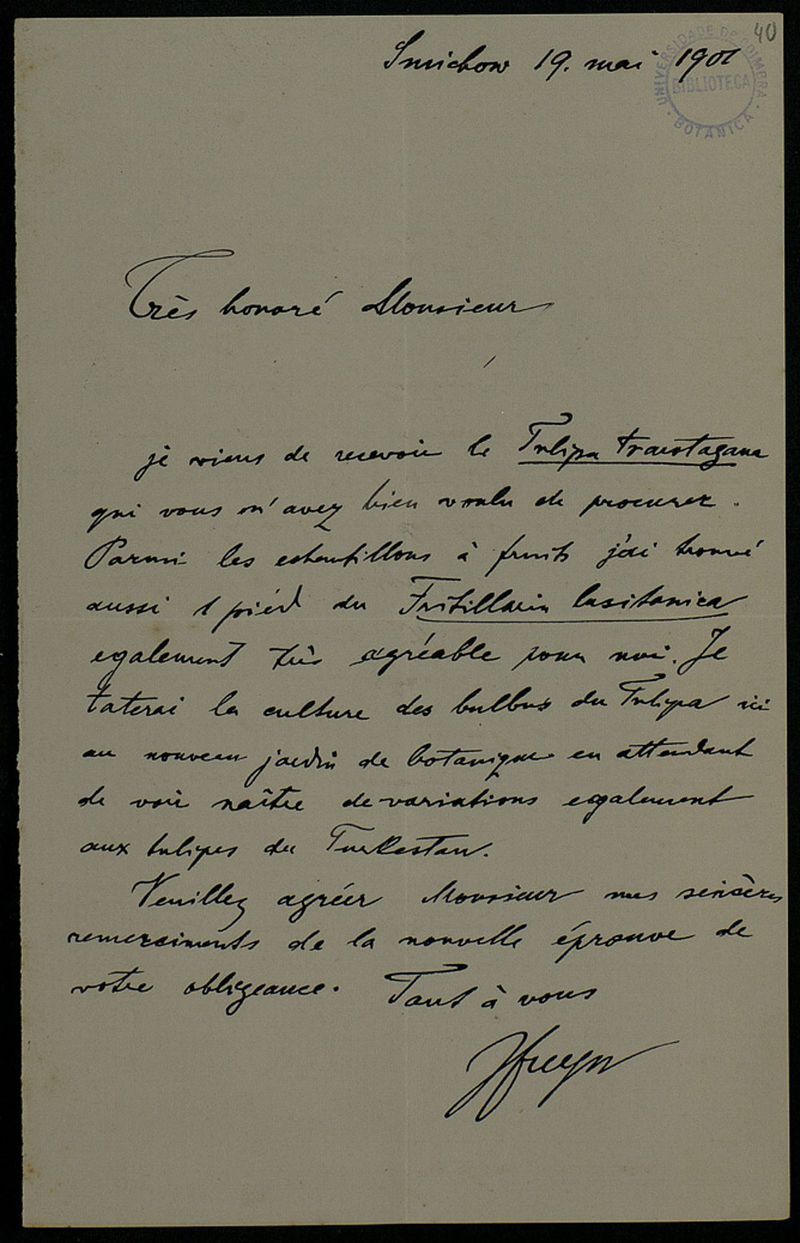 40
Smichow 19. mai 1901
UNIVERSIDADE DE COIMBRA
BIBLIOTECA
BOTANICA
Très honoré Monsieur
je viens de recevoir le Tulipa transtagana
qui vous m'avez bien voulu de procurer.
Parmi les echantillons à fruits j'ai trouvé
aussi 1 piéd du Fritillaria lusitanica
egalement très agréable pour moi. Je
taterai la culture des bulbus du Tulipa ici
au nouveau jardin de botanique en attendant
de voir naître de variations egalement
aux tulipes du Turkestan.
Veuillez agréer Monsieur mes sincères
remerciments de la nouvelle éprouve de
votre obligeance. Tout à vous
JFreyn